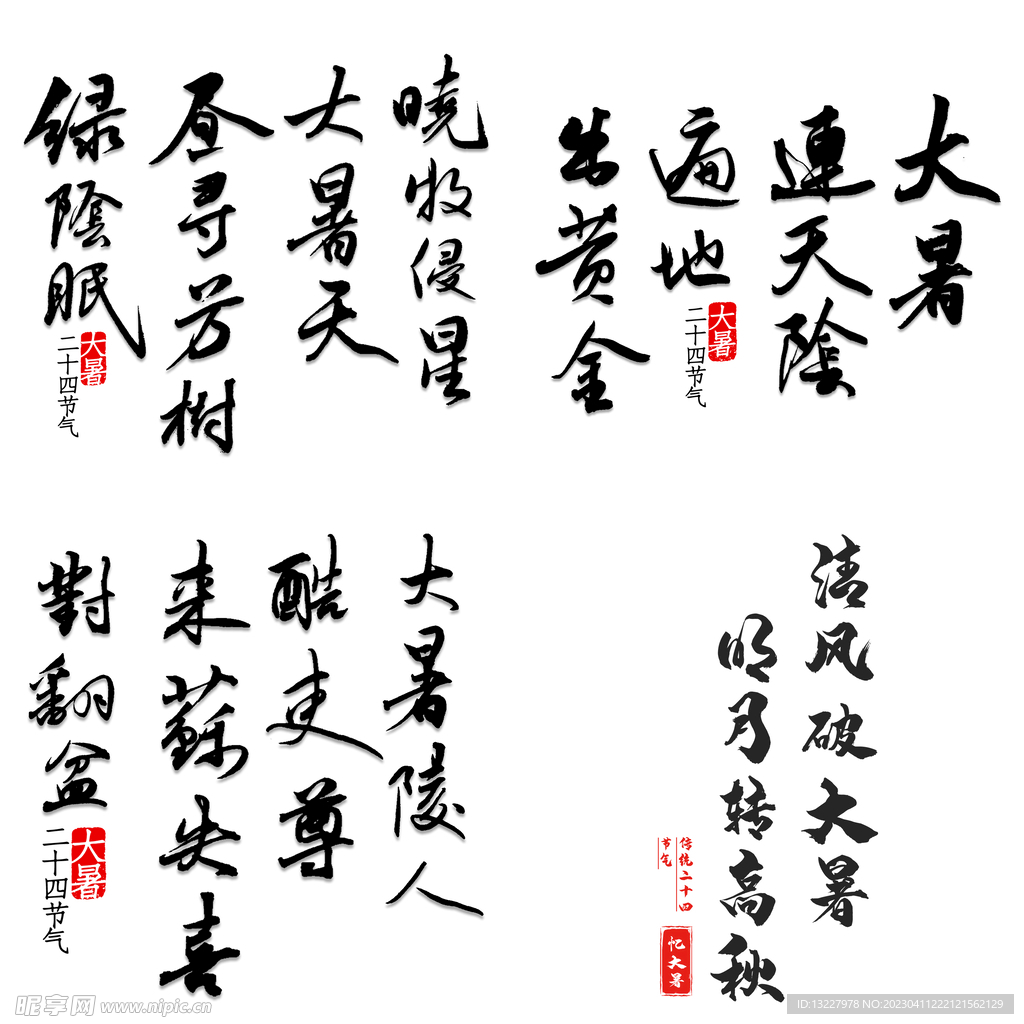 曉牧侵星
大暑天
昼寻芳樹
绿陰眠
大暑
二十四节气
大暑
連天陰
遍地
出黄金
大暑
二十四节气
大暑陵人
酷吏尊
来蘇失喜
對翻盆
大暑
二十四节气
清风破大暑
明月转高秋
传统二十四
节气
忆大暑
昵享网 www.nipic.cn
ID:13227978 NO:20230411222121562129